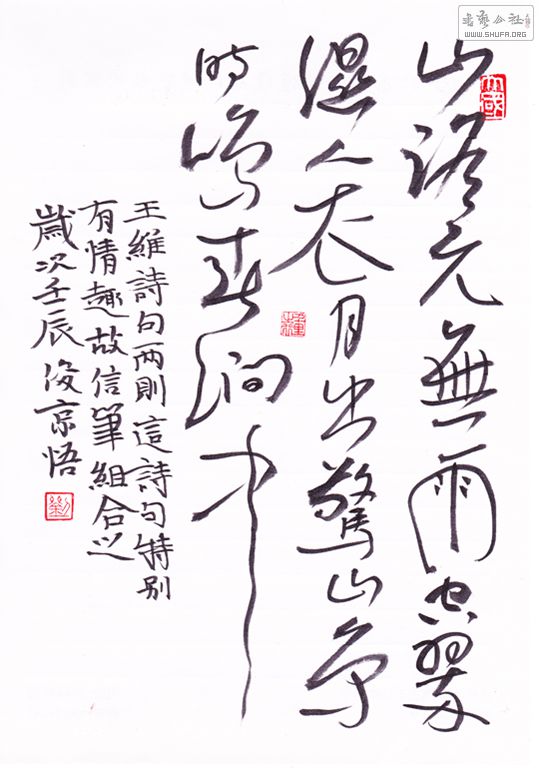 山路元無雨空翠
濕人衣月出驚山鳥
時鳴春澗中
王維詩句兩則這詩句特別
有情趣故信筆組合之
歲次壬辰俊京悟
劉
書藝公社
WWW.SHUFA.ORG